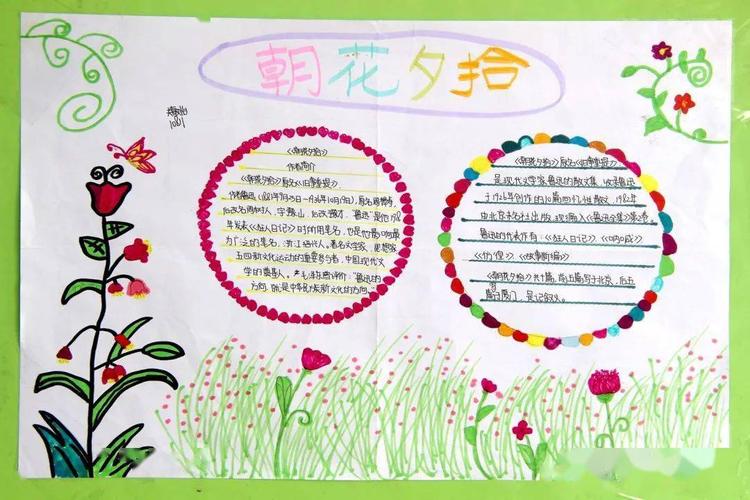 朝花夕拾
1081
《朝花夕拾》
作者简介
《朝花夕拾》原名《旧事重提》
作者鲁迅(1881年9月25日-1936年10月19日),原名周樟寿,
后改名周树人,字豫山,后改豫才,"鲁迅"是他1918
年发表《狂人日记》时所用笔名,也是他最影响最
为广泛的笔名,浙江绍兴人。著名文学家,思想家
五四新文化运动的重要参与者,中国现代文
学的奠基人。毛泽东评价:"鲁迅的
方向,就是中华民族新文化的方向。"
《朝花夕拾》原名《旧事重提》
是现代文学家鲁迅的散文集,收录鲁迅
于1926年创作的10篇回忆性散文,1928年
由北京未名社出版,现编入《鲁迅全集》第2卷。
鲁迅的代表作有:《狂人日记》、《呐喊》
《彷徨》、《故事新编》
《朝花夕拾》共十篇,前五篇写于北京,后五
篇写于厦门,是记叙文。